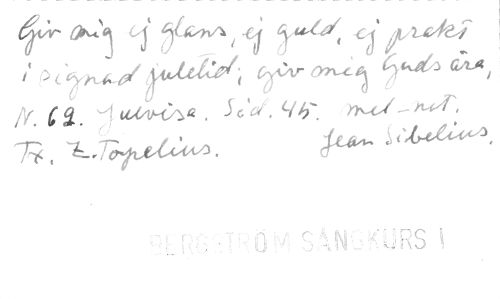 Giv mig ej glans, ej guld, ej prakt
i signad juletid; giv mig Guds ära,
N. 62. Julvisa. Sid. 45. mel-not.
Tx. Z. Topelius. Jean Sibelius.
BERGSTRÖM SÅNGKURS I